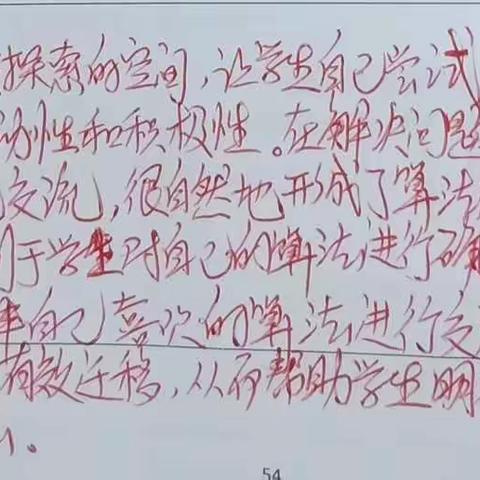 探索的空间,让学生自己尝试
动性和积极性。在解决问题
交流,很自然地形成了算法
于学生对自己的算法进行确
自己喜欢的算法进行交
有效迁移,从而帮助学生明
。
54